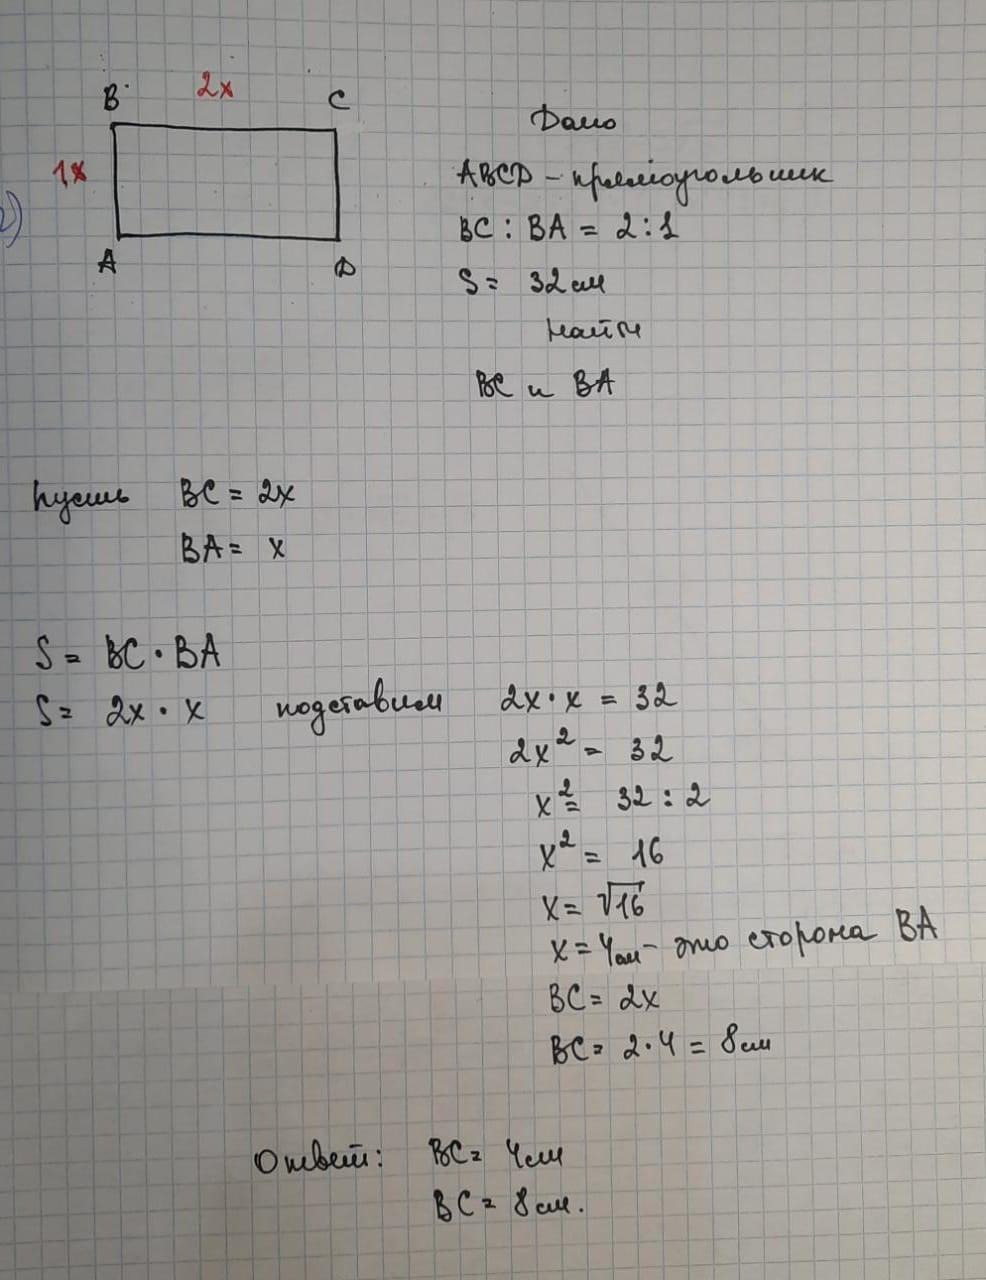 B 2x C
1x
2)
A D
Дано
ABCD - прямоугольник
BC : BA = 2:1
S = 32 см
Найти
BC и BA
Пусть BC = 2x
BA = x
S = BC · BA
S = 2x · x подставим 2x · x = 32
2x² = 32
x² = 32 : 2
x² = 16
x = √16
x = 4см - это сторона BA
BC = 2x
BC = 2 · 4 = 8 см
Ответ: BC = 4см
BC = 8 см.